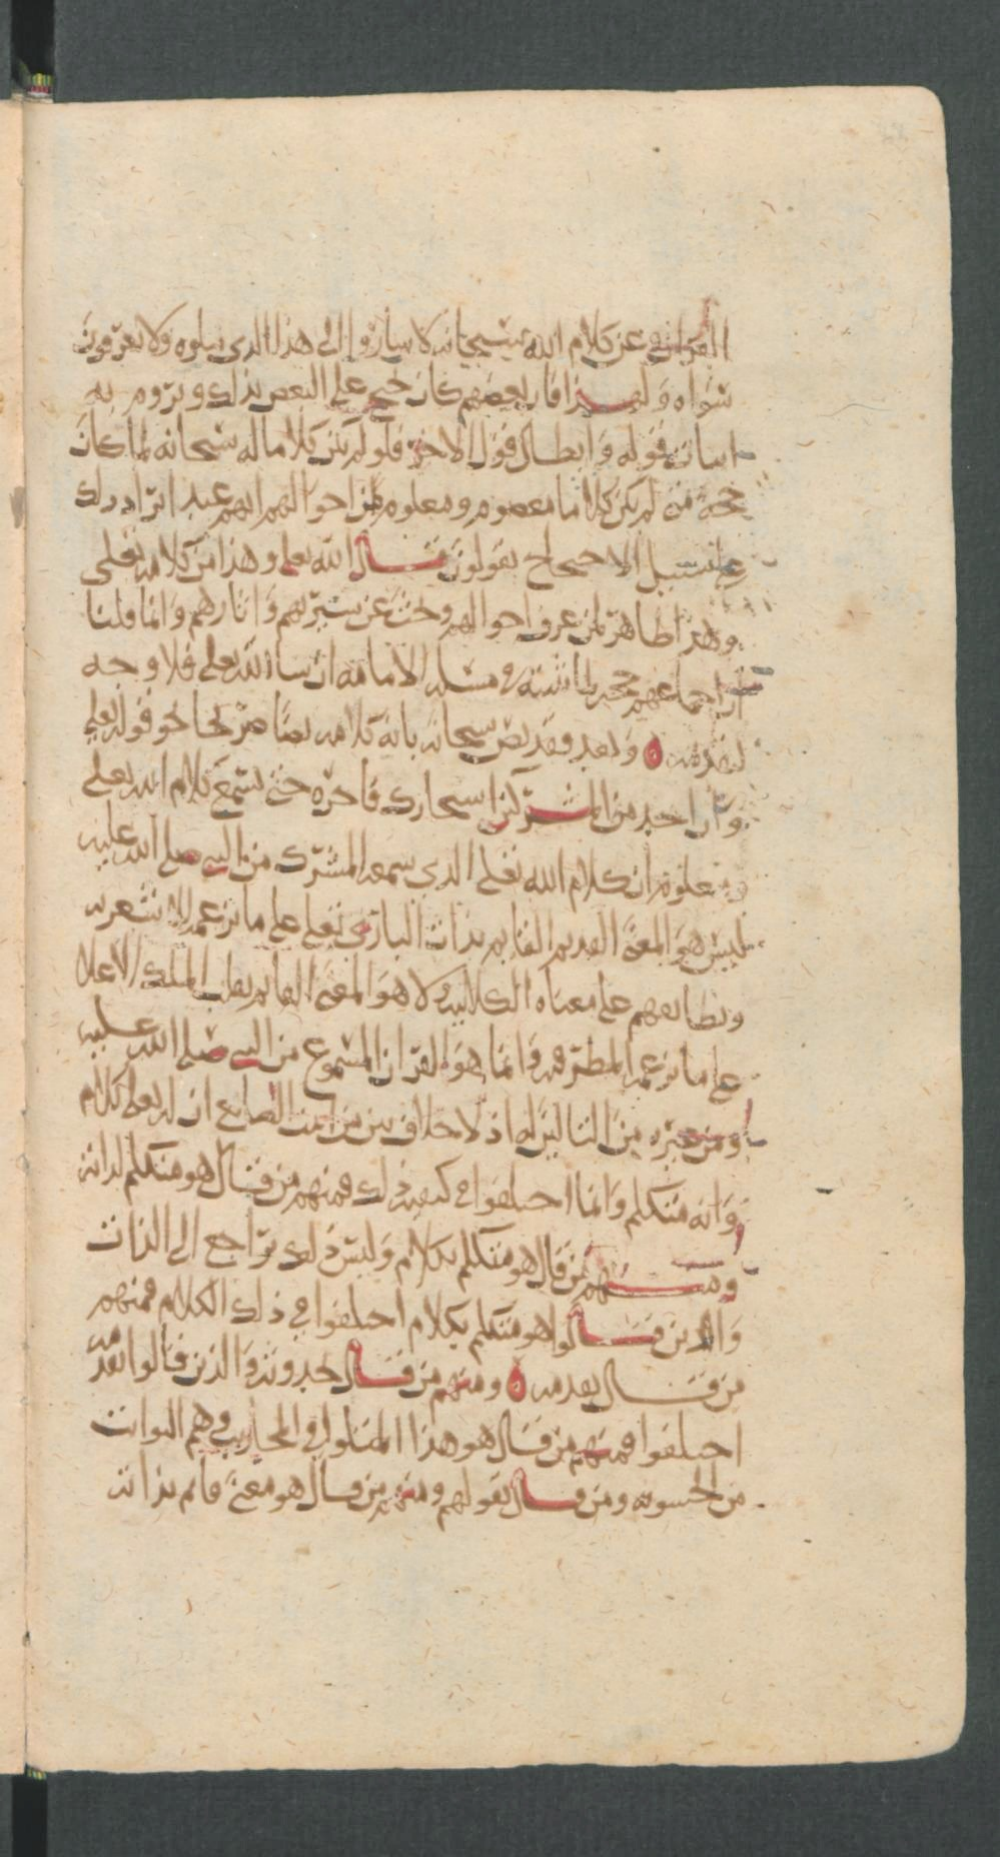 القرانيه عن كلام الله سبحانه لاشاروا الى هذا الذي نتلوه ولا يعرفون
سواه ولهذا فان بعضهم كان يحتج على البعض بذلك ويروم به
اثبات قوله وابطال قول الاخر فلو لم يكن كلاما له سبحانه لما كان
حجة من لم يكن كلاما معصوم ومعلوم من احوالهم انهم عند ايراد ذلك
على سبيل الاحتجاج يقولون قال الله تعلى وهذا من كلامه تعلى
وهذا ظاهر لمن عرف احوالهم وبحث عن سيرهم واثارهم وانما قلنا
ان اجماعهم حجة لما نثبته في مسئلة الامامة ان شا الله تعلى فلا وجه
لتقدمه ۞ وبعد فقد نص سبحانه بانه كلامه نصا صريحا نحو قوله تعلى
وان احد من المشركين استجارك فاجره حتى يسمع كلام الله تعلى
ومعلوم ان كلام الله تعلى الذي سمعه المشرك من النبي صلى الله عليه
ليس هو المعنى القديم القايم بذات الباري تعلى على ما تزعمه الاشعريه
ونظايرهم على معناه الكلابيه ولا هو المعنى القايم بقلب الملك الاعلا
على ما تزعمه المطرفيه وانما هو القران المسموع من النبي صلى الله عليه
ومن غيره من التالين له اذ لا خلاف بين من اثبت الصانع ان له تعلى كلام
وانه متكلم وانما اختلفوا في كيفية ذلك فمنهم من قال هو متكلم لذاته
ومنهم من قال هو متكلم بكلام وليس ذلك براجع الى الذات
والذين قالوا هو متكلم بكلام اختلفوا في ذلك الكلام فمنهم
من قال بقدمه ۞ ومنهم من قال بحدوثه والذين قالوا بقدمه
اختلفوا فمنهم من قال هو هذا المتلو في المحاريب وهم النوابت
من الحشويه ومن قال بقولهم ومنهم من قال هو معنى قايم بذاته